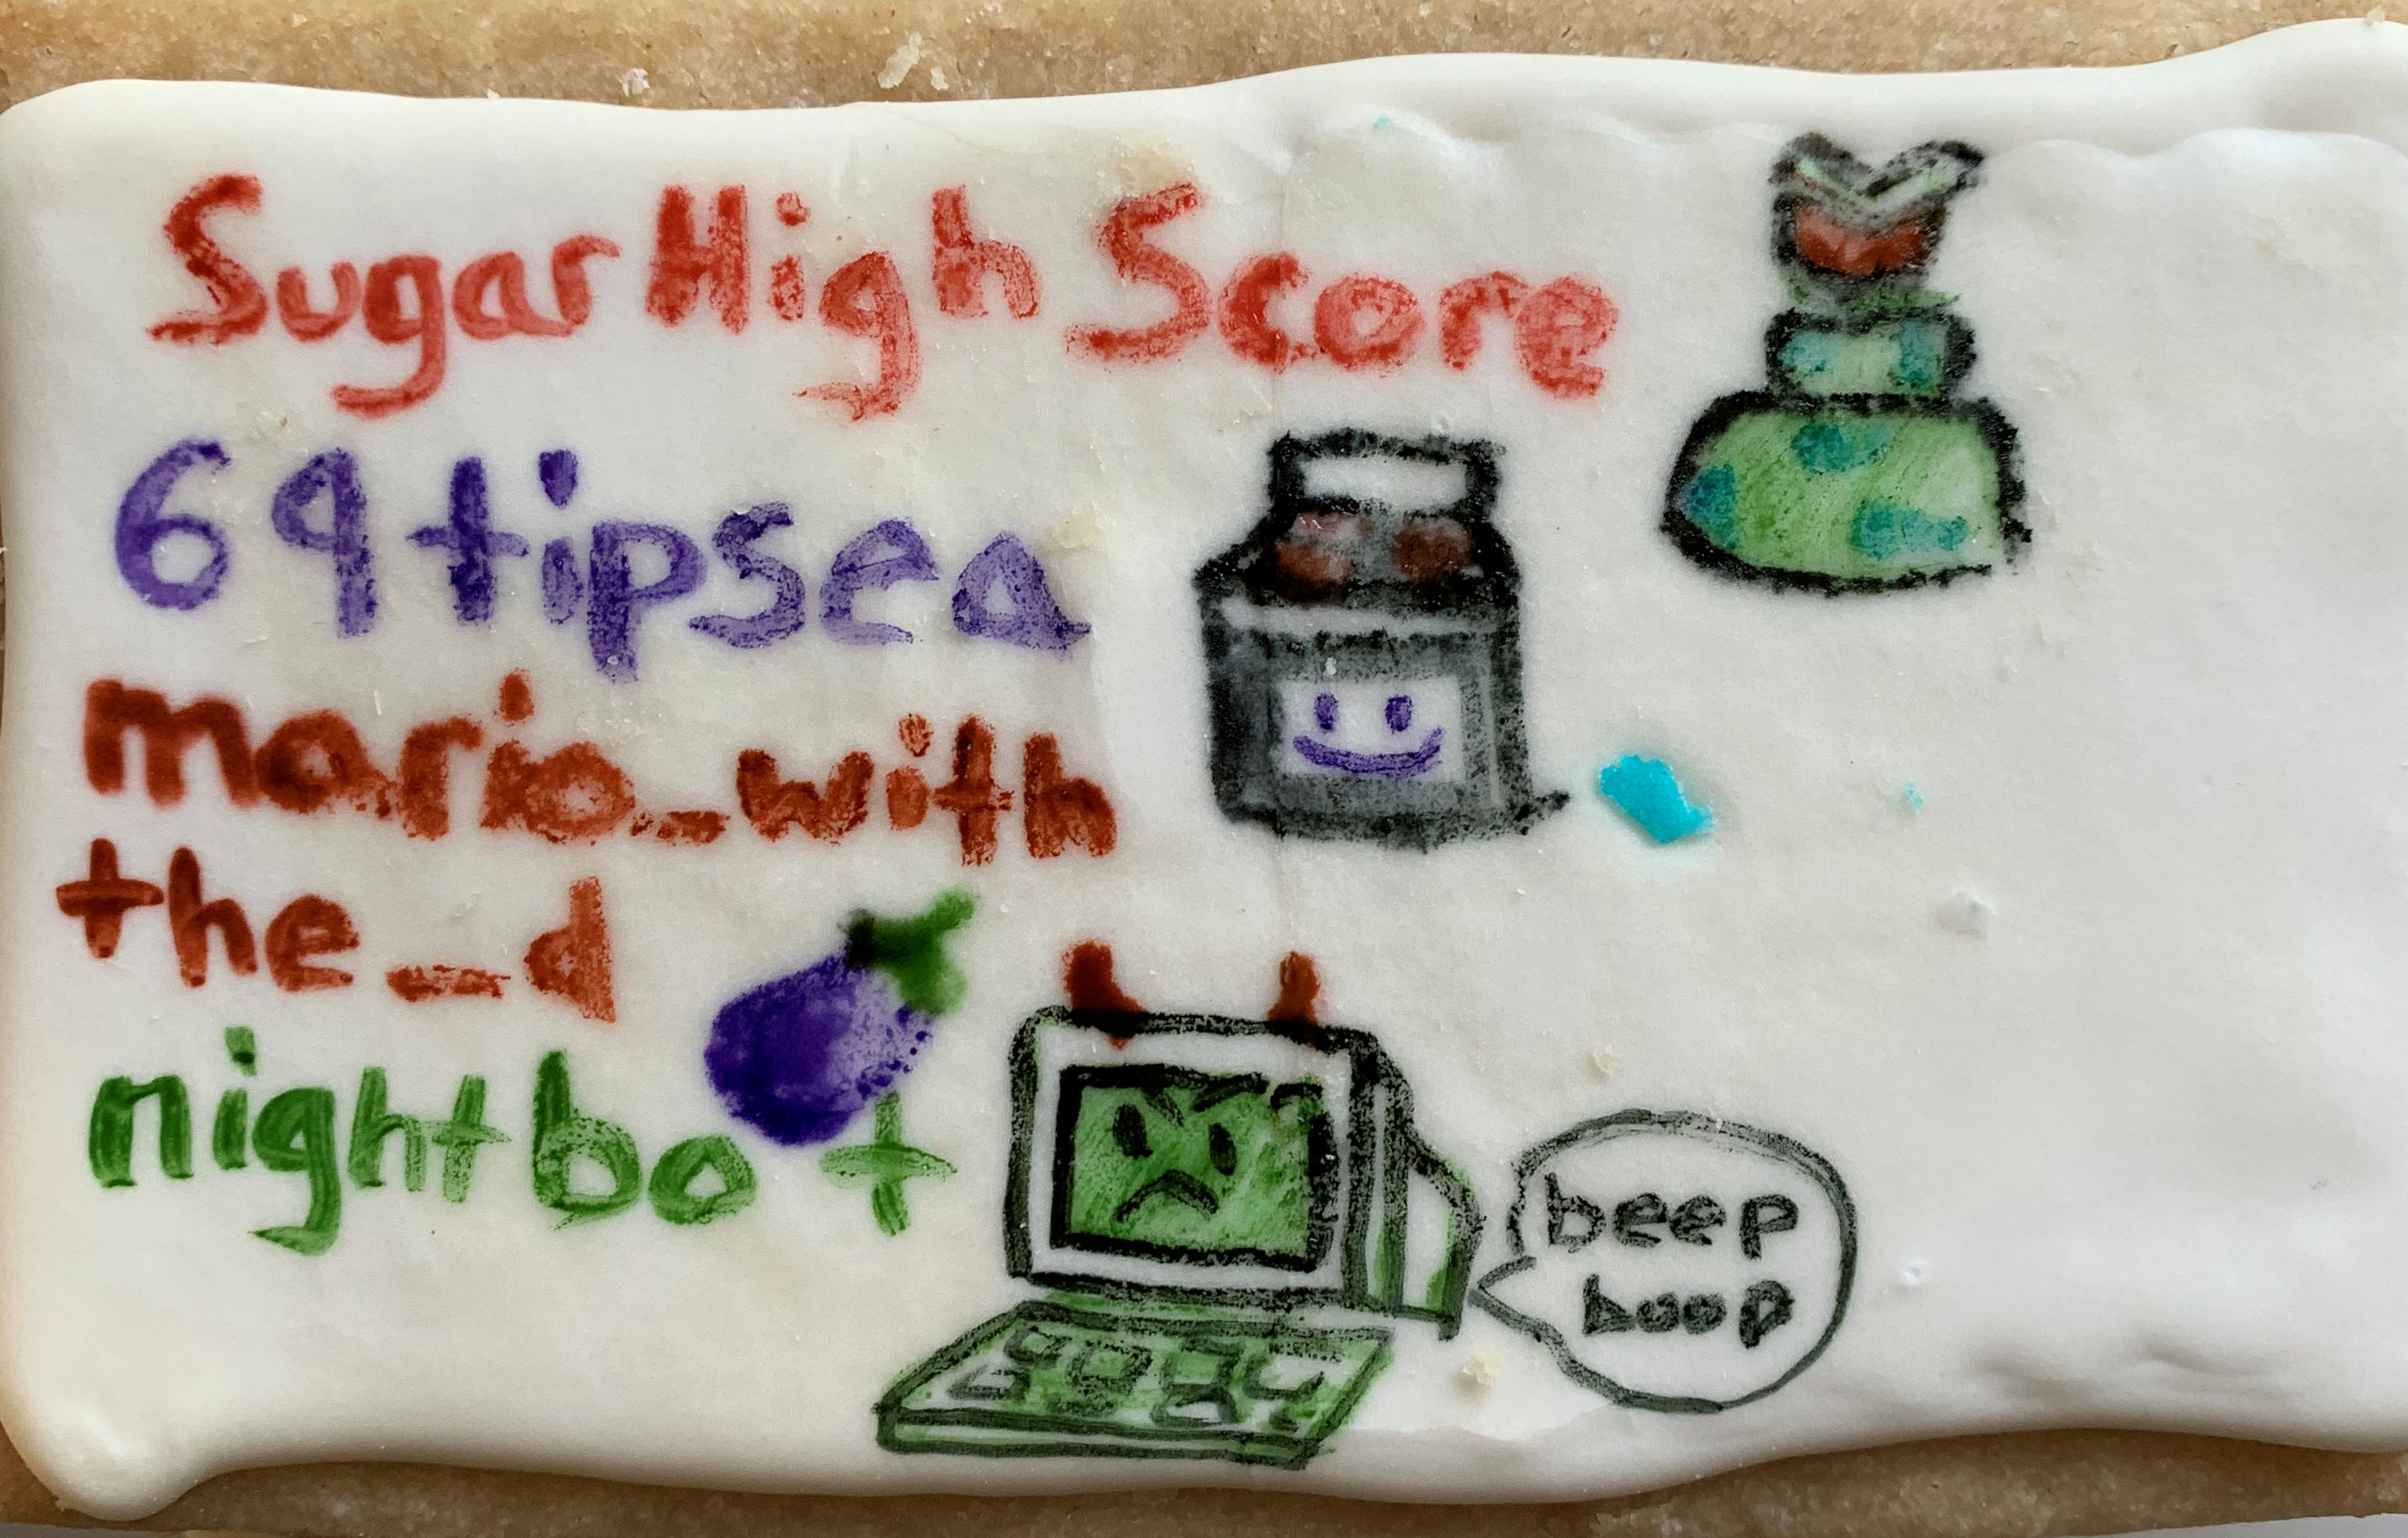 Sugar High Score
69tipsea
mario_with
the_d
nightbot
beep
boop